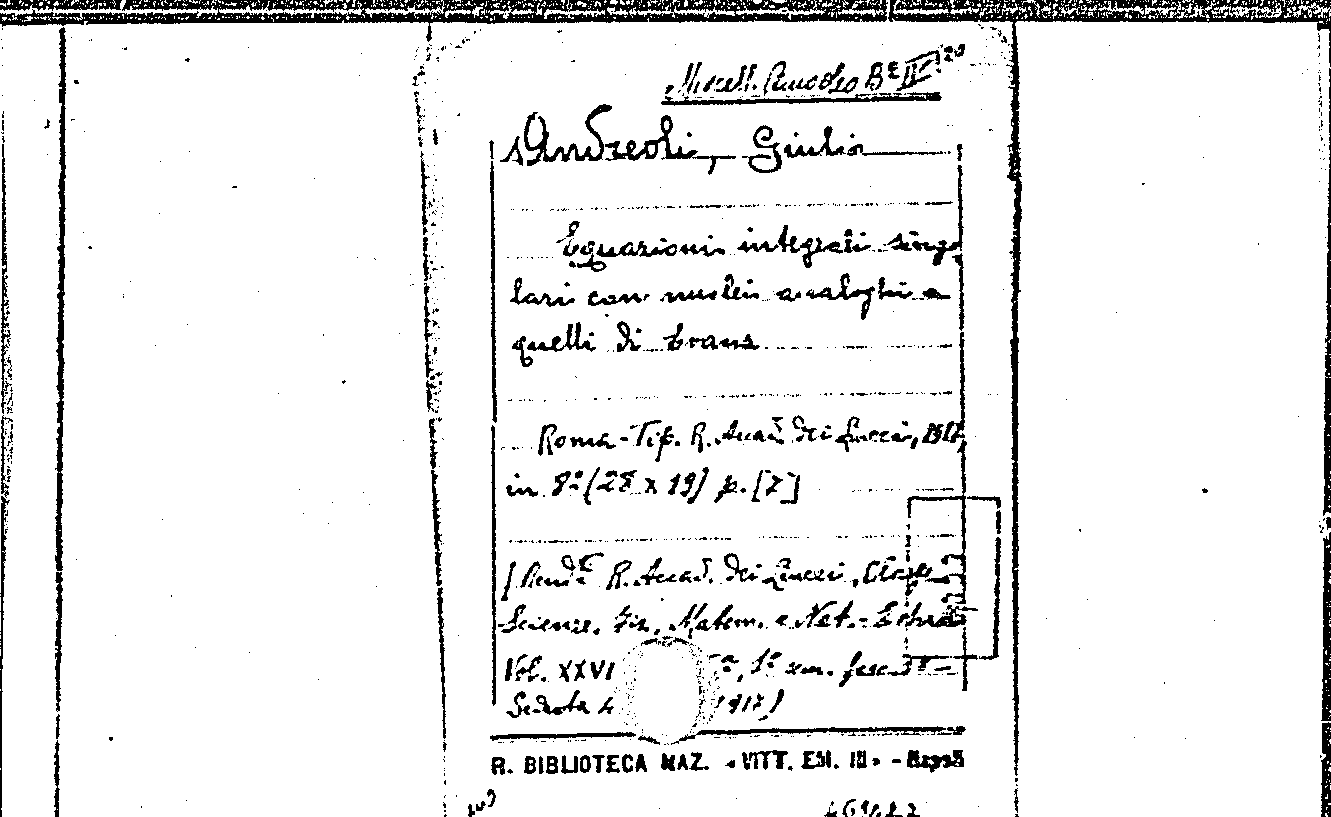 Miscell. B.ª
Andreoli, Giulio
Equazioni integrali singo
lari con nuclei analoghi a
quelli di Evans
Roma - Tip. R. Accad. dei Lincei, 1917,
in 8º (28 x 19) p. [7]
[Rend.ti R. Accad. dei Lincei, Classe
Scienze. Fis., Matem. e Nat. - Estratto
Vol. XXVI ª, 1º sem. fasc.
Seduta 4 1917]
R. BIBLIOTECA NAZ. «VITT. EM. III» - Napoli